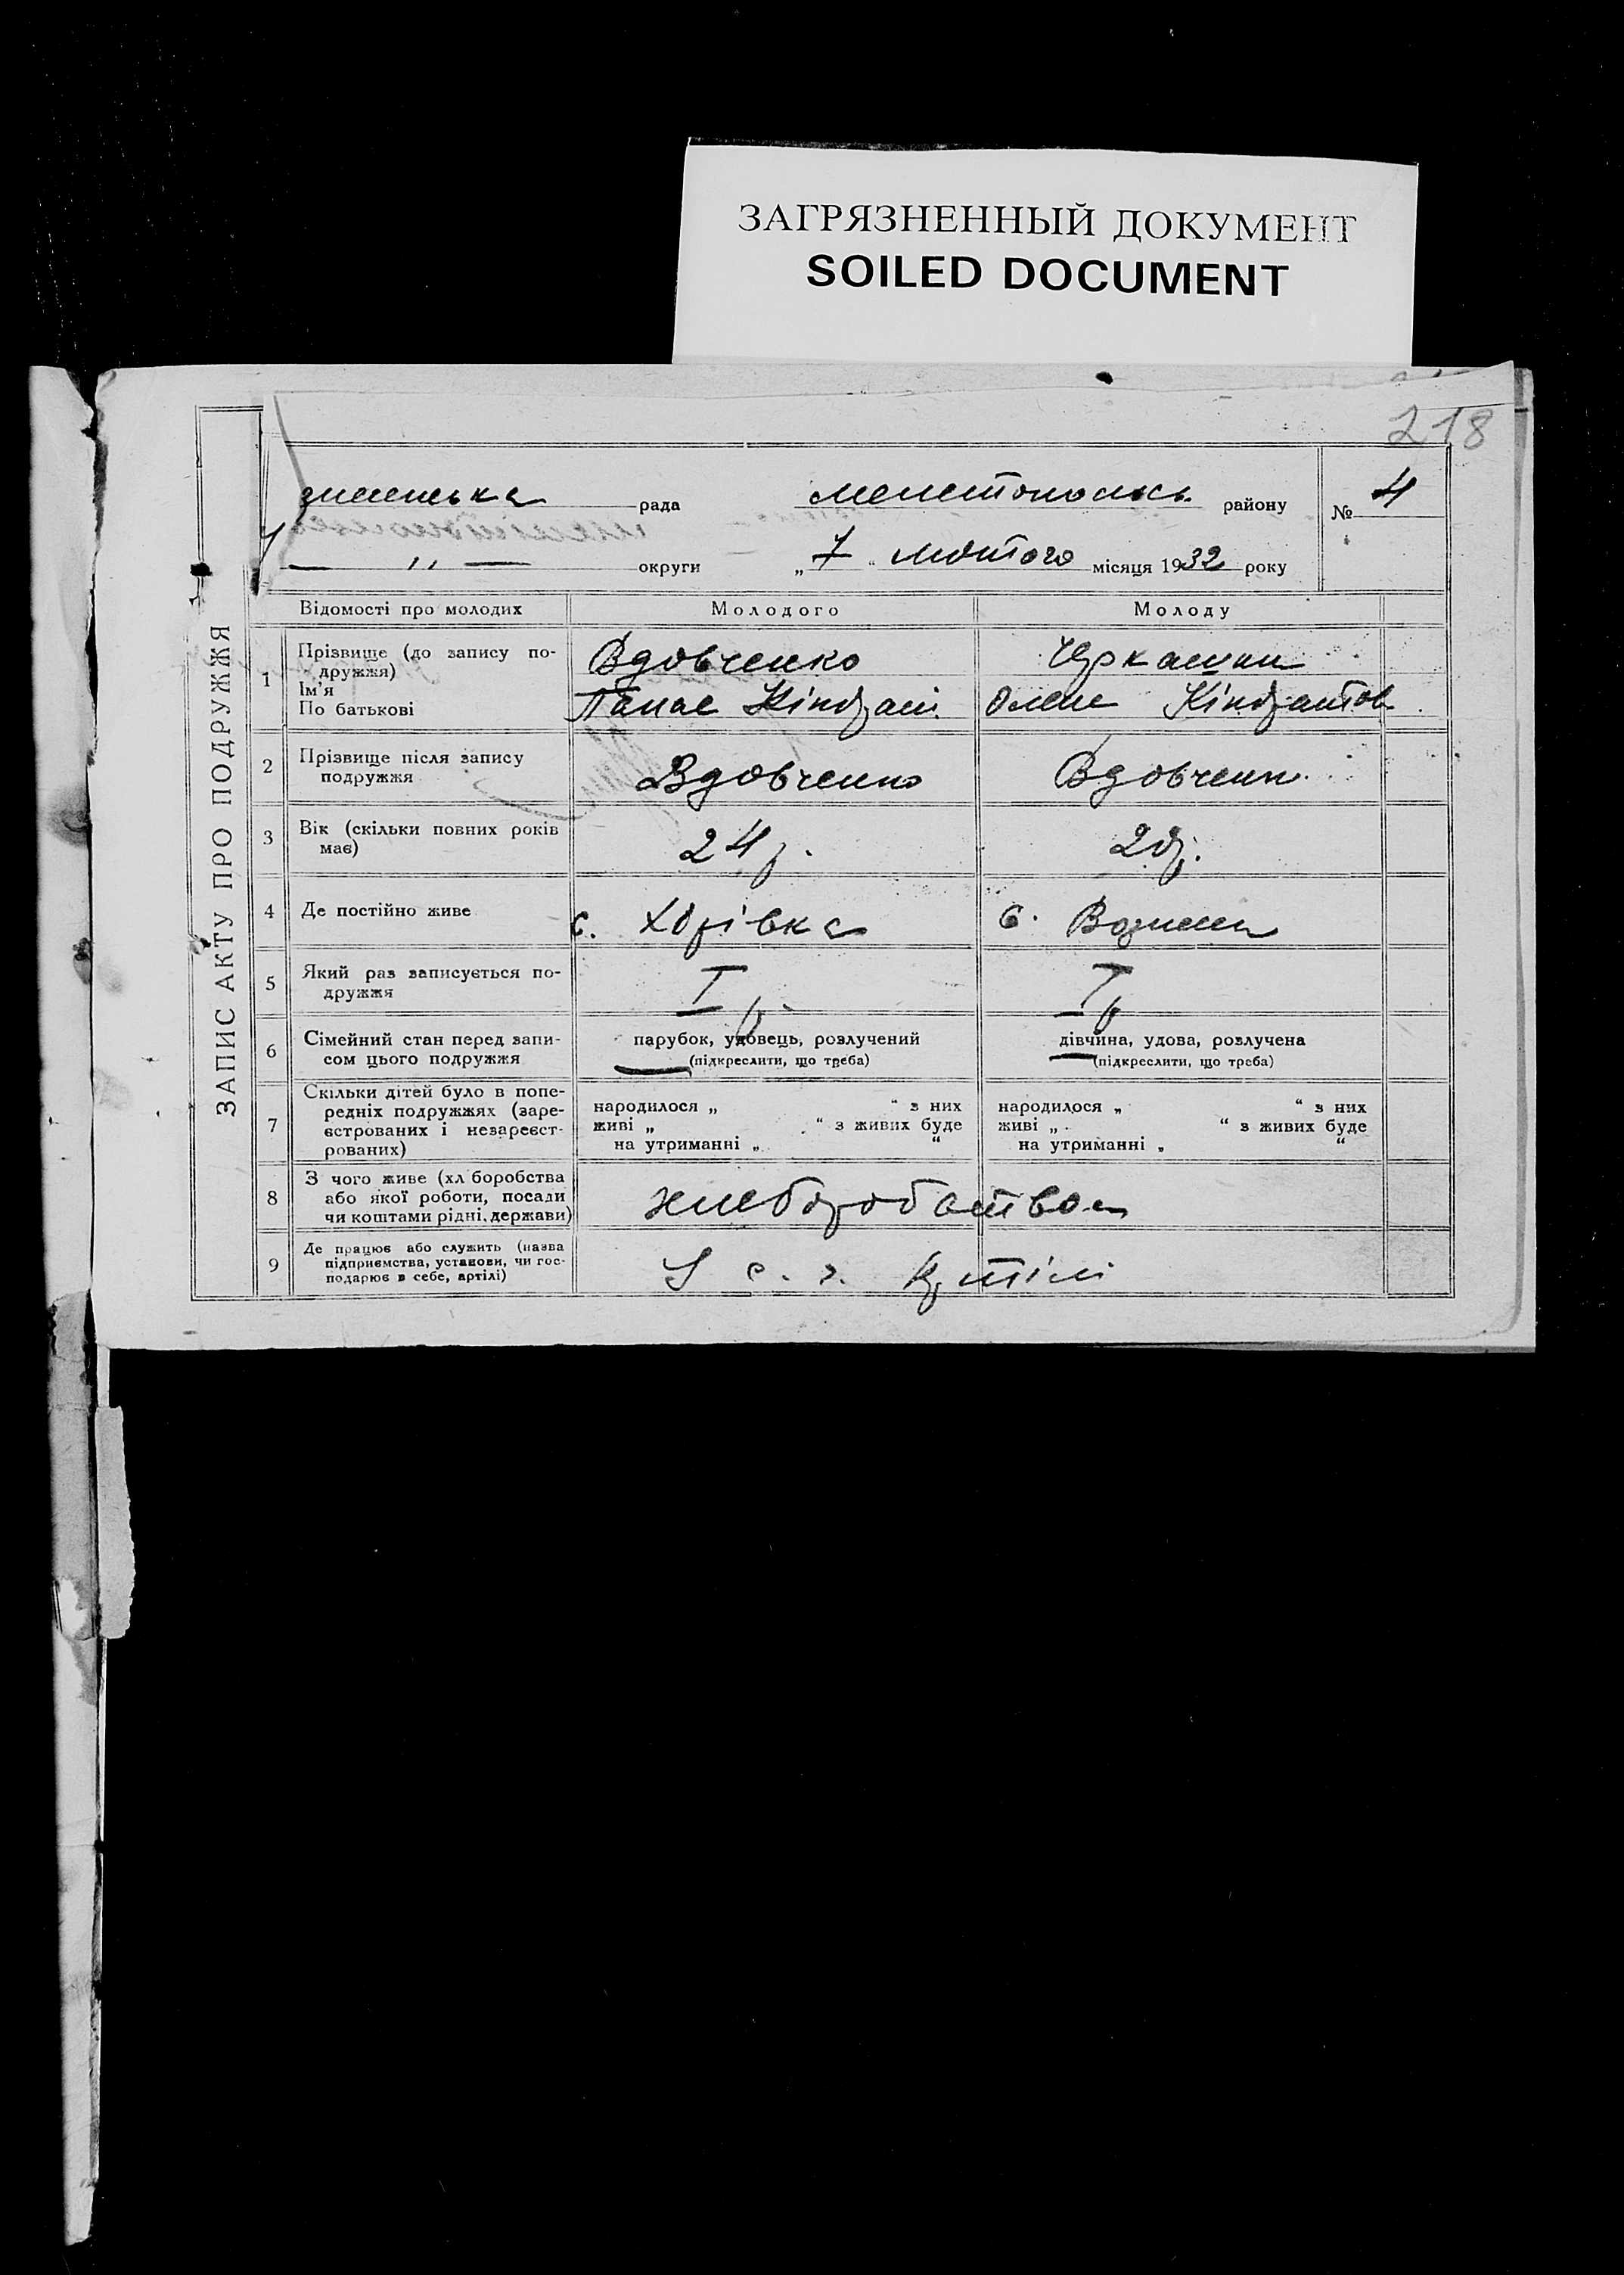 ЗАГРЯЗНЕННЫЙ ДОКУМЕНТ
SOILED DOCUMENT
218
ЗАПИС АКТУ ПРО ПОДРУЖЖЯ
рада
району
№ 4
округи
„ 7 “ лютого місяця 1932 року
Відомості про молодих Молодого Молоду
1 Прізвище (до запису по-
дружжя)
Ім'я
По батькові
Вдовченко
Панас Кіндрат.
Черкашин
Олена Кіндратов
2 Прізвище після запису
подружжя
Вдовченко Вдовченк.
3 Вік (скільки повних років
має)
24 р. 20 р.
4 Де постійно живе
с. с.
5 Який раз записується по-
дружжя
I р. I р
6 Сімейний стан перед запи-
сом цього подружжя
парубок, удовець, розлучений
(підкреслити, що треба)
дівчина, удова, розлучена
(підкреслити, що треба)
7 Скільки дітей було в попе-
редніх подружжях (заре-
єстрованих і незареєст-
рованих)
народилося „ “ з них
живі „ “ з живих буде
на утриманні „ “
народилося „ “ з них
живі „ “ з живих буде
на утриманні „ “
8 З чого живе (хл боробства
або якої роботи, посади
чи коштами рідні, держави)
хлеборобством
9 Де працює або служить (назва
підприємства, установи, чи гос-
подарює в себе, артілі)
У с. г. Артілі